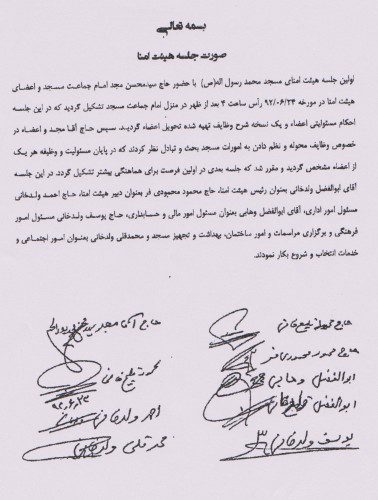 بسمه تعالی
صورت جلسه هیئت امنا
اولین جلسه هیئت امنای مسجد محمد رسول اله(ص) با حضور حاج سیدمحسن مجد امام جماعت مسجد و اعضای
هیئت امنا در مورخه ۹۲/۰۶/۲۴ رأس ساعت ۴ بعد از ظهر در منزل امام جماعت مسجد تشکیل گردید که در این جلسه
احکام مسئولیتی اعضاء و یک نسخه شرح وظایف تهیه شده تحویل اعضاء گردید. سپس حاج آقا مجد و اعضاء در
خصوص وظایف محوله و نظم دادن به امورات مسجد بحث و تبادل نظر کردند که در پایان مسئولیت و وظیفه هر یک
از اعضاء مشخص گردید و مقرر شد که جلسه بعدی در اولین فرصت برای هماهنگی بیشتر تشکیل گردد. در این جلسه
آقای ابوالفضل ولدخانی بعنوان رئیس هیئت امنا، حاج محمود محمودی فر بعنوان دبیر هیئت امنا، حاج احمد ولدخانی
مسئول امور اداری، آقای ابوالفضل وهابی بعنوان مسئول امور مالی و حسابداری، حاج یوسف ولدخانی مسئول امور
فرهنگی و برگزاری مراسمات و امور ساختمان، بهداشت و تجهیز مسجد و محمدقلی ولدخانی بعنوان امور اجتماعی و
خدمات انتخاب و شروع بکار نمودند.
حاج آقا مجد سید
حاج محمود محمودی فر
ابوالفضل وهابی
ابوالفضل ولدخانی
یوسف ولدخانی
احمد ولدخانی
محمد قلی ولدخانی